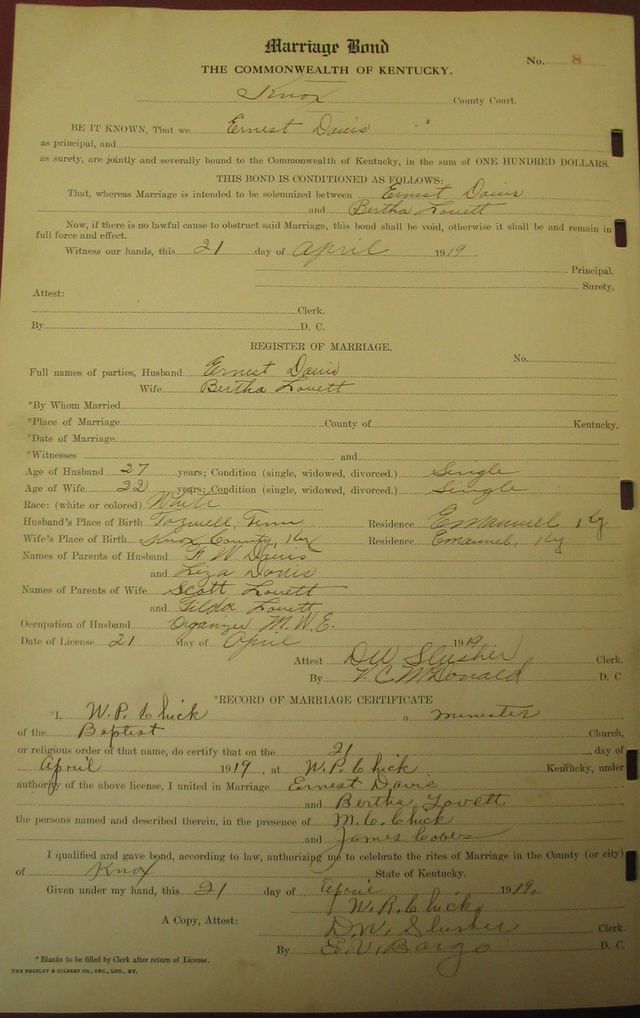 Marriage Bond
No. 8
THE COMMONWEALTH OF KENTUCKY.
Knox County Court.
BE IT KNOWN, That we Ernest Davis
as principal, and
as surety, are jointly and severally bound to the Commonwealth of Kentucky, in the sum of ONE HUNDRED DOLLARS.
THIS BOND IS CONDITIONED AS FOLLOWS:
That, whereas Marriage is intended to be solemnized between Ernest Davis
and Bertha Lovett
Now, if there is no lawful cause to obstruct said Marriage, this bond shall be void, otherwise it shall be and remain in
full force and effect.
Witness our hands, this 21 day of April 1919.
Principal.
Surety.
Attest:
Clerk.
By D. C.
REGISTER OF MARRIAGE.
No.
Full names of parties, Husband Ernest Davis
Wife Bertha Lovett
*By Whom Married
*Place of Marriage County of Kentucky.
*Date of Marriage
*Witnesses and
Age of Husband 27 years; Condition (single, widowed, divorced.) Single
Age of Wife 22 years; Condition (single, widowed, divorced.) Single
Race: (white or colored) White
Husband's Place of Birth Tazwell, Tenn Residence Emanuel, Ky
Wife's Place of Birth Knox County, Ky Residence Emanuel, Ky
Names of Parents of Husband W Davis
and Liza Davis
Names of Parents of Wife Scott Lovett
and Tilda Lovett
Occupation of Husband Organizer M. W. E.
Date of License 21 day of April 1919.
Attest DW Slusher Clerk.
By V. C. McDonald D. C
*RECORD OF MARRIAGE CERTIFICATE
*I, W. P. Chick a minester
of the Baptist Church,
or religious order of that name, do certify that on the 21 day of
April 1919, at W. P. Chick Kentucky, under
authority of the above license, I united in Marriage Ernest Davis
and Bertha Lovett
the persons named and described therein, in the presence of M. C. Chick
and James
I qualified and gave bond, according to law, authorizing me to celebrate the rites of Marriage in the County (or city)
of Knox State of Kentucky.
Given under my hand, this 21 day of April 1919.
W. R. Chick
A Copy, Attest: D. W. Slusher Clerk.
By E. V. Bargo D. C.
* Blanks to be filled by Clerk after return of License.
THE BRADLEY & GILBERT CO., INC., LOU., KY.